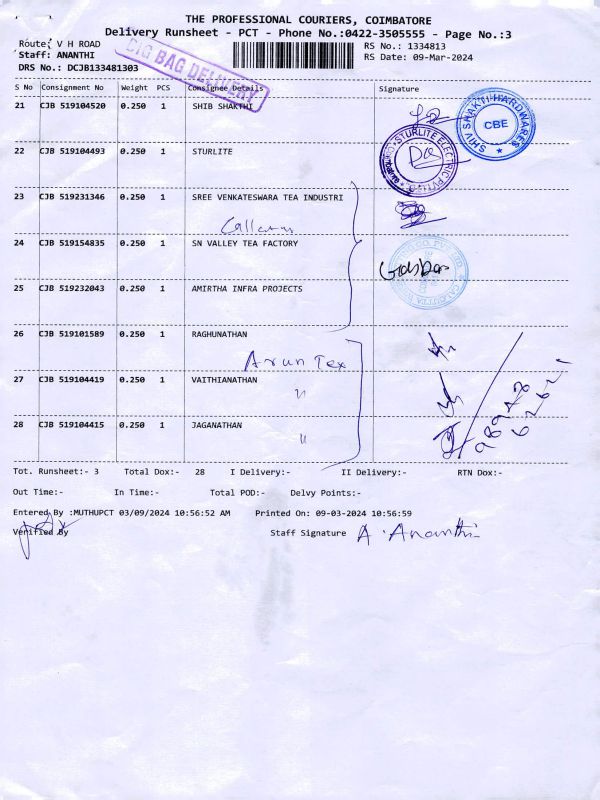 THE PROFESSIONAL COURIERS, COIMBATORE
Delivery Runsheet - PCT - Phone No.:0422-3505555 - Page No.:3
Route: V H ROAD
RS No.: 1334813
Staff: ANANTHI
RS Date: 09-Mar-2024
DRS No.: DCJB133481303
BIG BAG DELIVERY
S No Consignment No Weight PCS Consignee Details Signature
21 CJB 519104520 0.250 1 SHIB SHAKTHI
SHIV SHAKTI HARDWARES
CBE
22 CJB 519104493 0.250 1 STURLITE
STURLITE ELECTRIC PVT LTD
23 CJB 519231346 0.250 1 SREE VENKATESWARA TEA INDUSTRI
24 CJB 519154835 0.250 1 SN VALLEY TEA FACTORY
25 CJB 519232043 0.250 1 AMIRTHA INFRA PROJECTS
26 CJB 519101589 0.250 1 RAGHUNATHAN
Arun Tex
27 CJB 519104419 0.250 1 VAITHIANATHAN
"
28 CJB 519104415 0.250 1 JAGANATHAN
"
Tot. Runsheet:- 3 Total Dox:- 28 I Delivery:- II Delivery:- RTN Dox:-
Out Time:- In Time:- Total POD:- Delvy Points:-
Entered By :MUTHUPCT 03/09/2024 10:56:52 AM Printed On: 09-03-2024 10:56:59
Verified By Staff Signature A. Ananthi